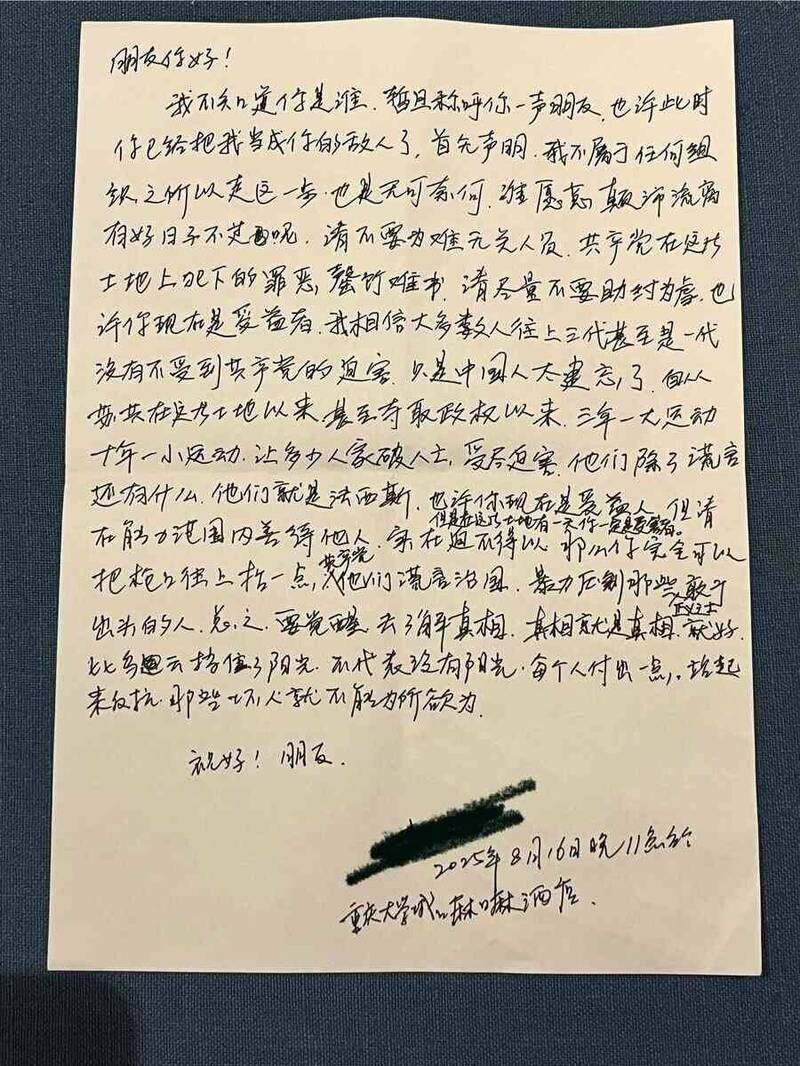 朋友你好!
我不知道你是谁.暂且称呼你一声朋友,也许此时
你已给把我当成你的敌人了,首先声明.我不属于任何组
织.之所以走这一步.也是无可奈何.谁愿意颠沛流离
有好日子不过呢.请不要为难无关人员.共产党在这片
土地上犯下的罪恶,罄竹难书.请尽量不要助纣为虐.也
许你现在是受益者.我相信大多数人往上三代甚至是一代
没有不受到共产党的迫害.只是中国人太健忘了.自从
苏共在这片土地以来.甚至夺取政权以来.三年一大运动
十年一小运动.让多少人家破人亡,受尽迫害.他们除了谎言
还有什么.他们就是法西斯.也许你现在是受益人.但请
但是在这片土地有一天你一定是受害者.
在能力范围内善待他人.实在迫不得以.那么你完全可以
把枪口往上抬一点,共产党他们谎言治国.暴力压制那些敢于
出头的人.正义之士总之.要觉醒去了解真相.真相就是真相.就好
比乌云挡住了阳光.不代表没有阳光.每个人付出一点,.站起
来反抗.那些坏人就不能为所欲为.
祝好!朋友.
2025年8月16日晚11点于
重庆大学城麻麻酒店.